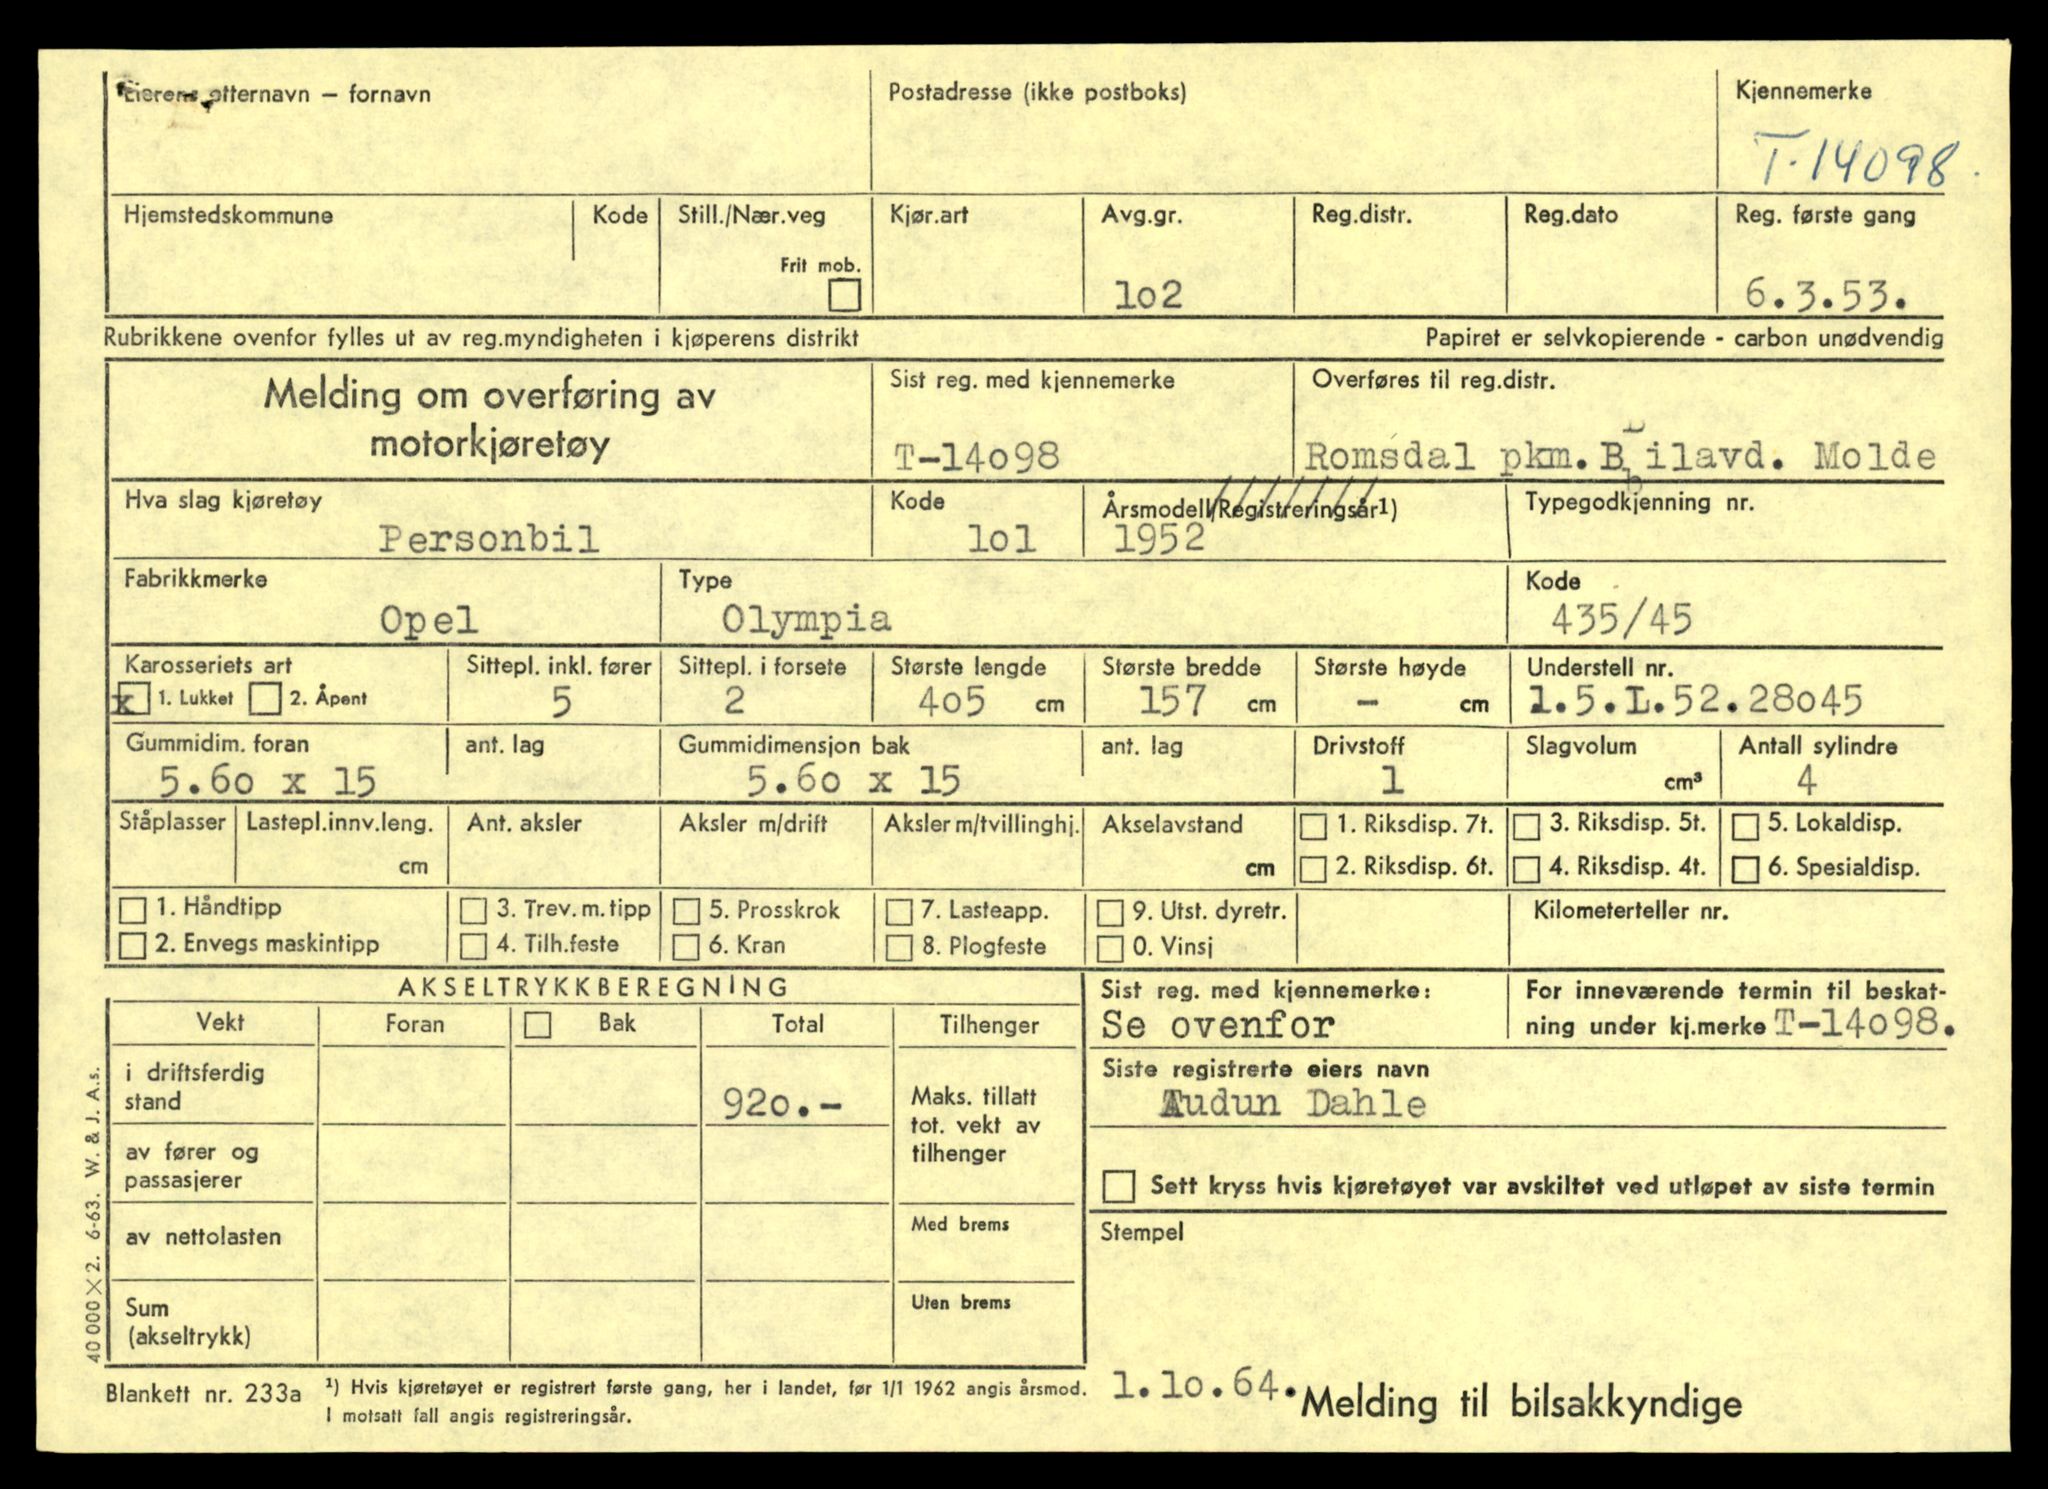 Eierens etternavn – fornavn Postadresse (ikke postboks) Kjennemerke
T-14098.
Hjemstedskommune Kode Still./Nær.veg Kjør.art Avg.gr. Reg.distr. Reg.dato Reg. første gang
Frit mob.
1o2 6.3.53.
Rubrikkene ovenfor fylles ut av reg.myndigheten i kjøperens distrikt Papiret er selvkopierende - carbon unødvendig
Melding om overføring av Sist reg. med kjennemerke Overføres til reg.distr.
motorkjøretøy T-14o98 Romsdal pkm. Bilavd. Molde
Hva slag kjøretøy Kode Årsmodell/Registreringsår¹) Typegodkjenning nr.
Personbil 1o1 1952
Fabrikkmerke Type Kode
Opel Olympia 435/45
Karosseriets art Sittepl. inkl. fører Sittepl. i forsete Største lengde Største bredde Største høyde Understell nr.
x 1. Lukket 2. Åpent 5 2 4o5 cm 157 cm - cm 1.5.L.52.28o45
Gummidim. foran ant. lag Gummidimensjon bak ant. lag Drivstoff Slagvolum Antall sylindre
5.6o x 15 5.6o x 15 1 cm³ 4
Ståplasser Lastepl.innv.leng. Ant. aksler Aksler m/drift Aksler m/tvillinghj. Akselavstand 1. Riksdisp. 7t. 3. Riksdisp. 5t. 5. Lokaldisp.
cm cm 2. Riksdisp. 6t. 4. Riksdisp. 4t. 6. Spesialdisp.
1. Håndtipp 3. Trev. m. tipp 5. Prosskrok 7. Lasteapp. 9. Utst. dyretr. Kilometerteller nr.
2. Envegs maskintipp 4. Tilh.feste 6. Kran 8. Plogfeste 0. Vinsj
AKSELTRYKKBEREGNING Sist reg. med kjennemerke: For inneværende termin til beskat-
Vekt Foran Bak Total Tilhenger Se ovenfor ning under kj.merke T-14o98.
i driftsferdig stand 92o.- Maks. tillatt tot. vekt av tilhenger
Siste registrerte eiers navn
Audun Dahle
av fører og passasjerer
Sett kryss hvis kjøretøyet var avskiltet ved utløpet av siste termin
av nettolasten Med brems Stempel
Sum (akseltrykk) Uten brems
40 000 × 2. 6-63. W. & J. A.s.
Blankett nr. 233a ¹) Hvis kjøretøyet er registrert første gang, her i landet, før 1/1 1962 angis årsmod. 1.1o.64. Melding til bilsakkyndige
I motsatt fall angis registreringsår.